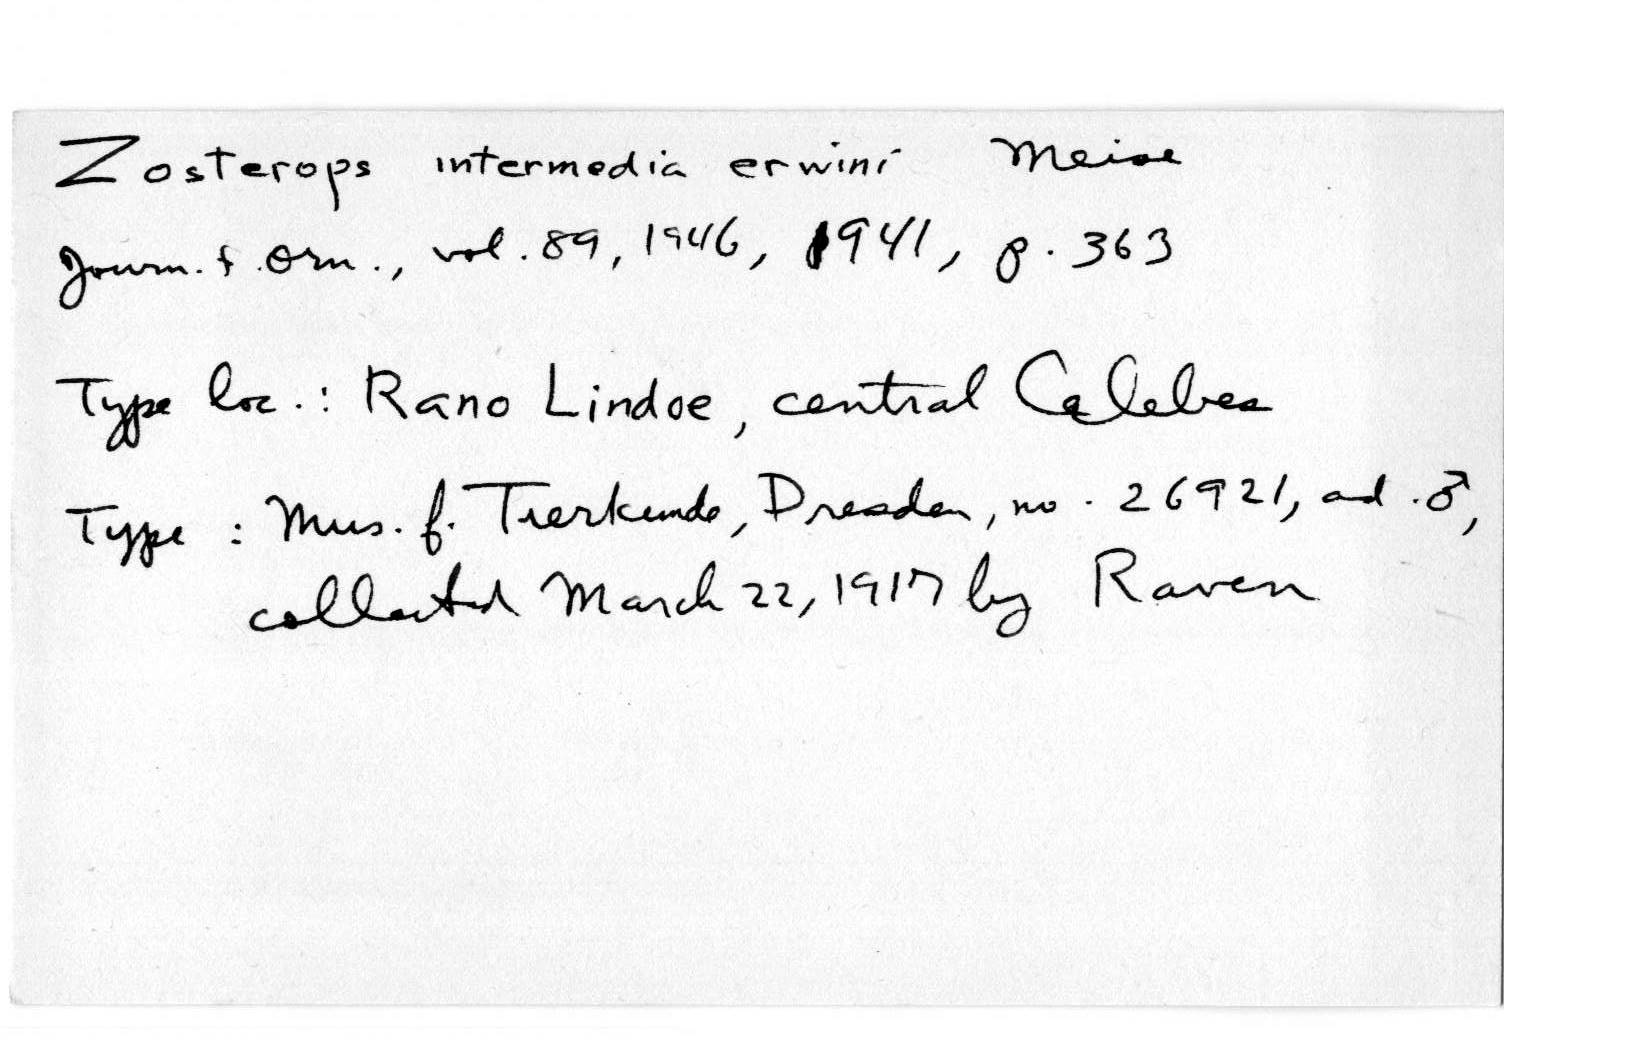 Zosterops intermedia erwini Meise
Journ. f. Orn., vol. 89, 1946, 1941, p. 363
Type loc.: Rano Lindoe, central Celebes
Type : Mus. f. Tierkunde, Dresden, no. 26921, ad. ♂,
collected March 22, 1917 by Raven